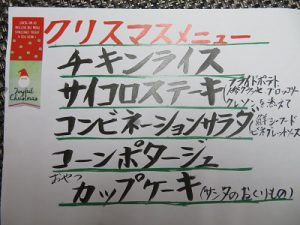 クリスマスメニュー
チキンライス
サイコロステーキ
フライドポテト
ブロッコリー
クレソンを添えて
コンビネーションサラダ
コーンポタージュ
おやつ
カップケーキ(サンタのおくりもの)
Joyful
Christmas